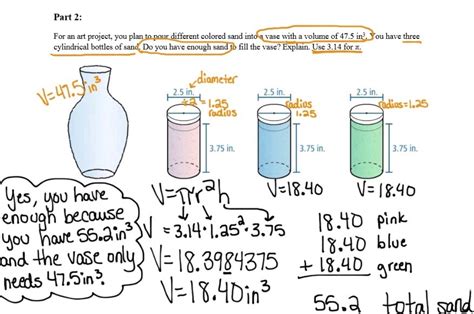 Part 2:
For an art project, you plan to pour different colored sand into a vase with a volume of 47.5 in³. You have three
cylindrical bottles of sand. Do you have enough sand to fill the vase? Explain. Use 3.14 for π.
V=47.5 in³
diameter
2.5 in. 2.5 in. 2.5 in.
÷2 = 1.25
radius radius 1.25 radius=1.25
3.75 in. 3.75 in. 3.75 in.
V=πr²h V=18.40 V=18.40
Yes, you have
enough because
you have 55.2in³
and the vase only
needs 47.5in³.
V = 3.14·1.25²·3.75
V=18.3984375
V=18.40in³
18.40 pink
18.40 blue
+ 18.40 green
55.2 total sand